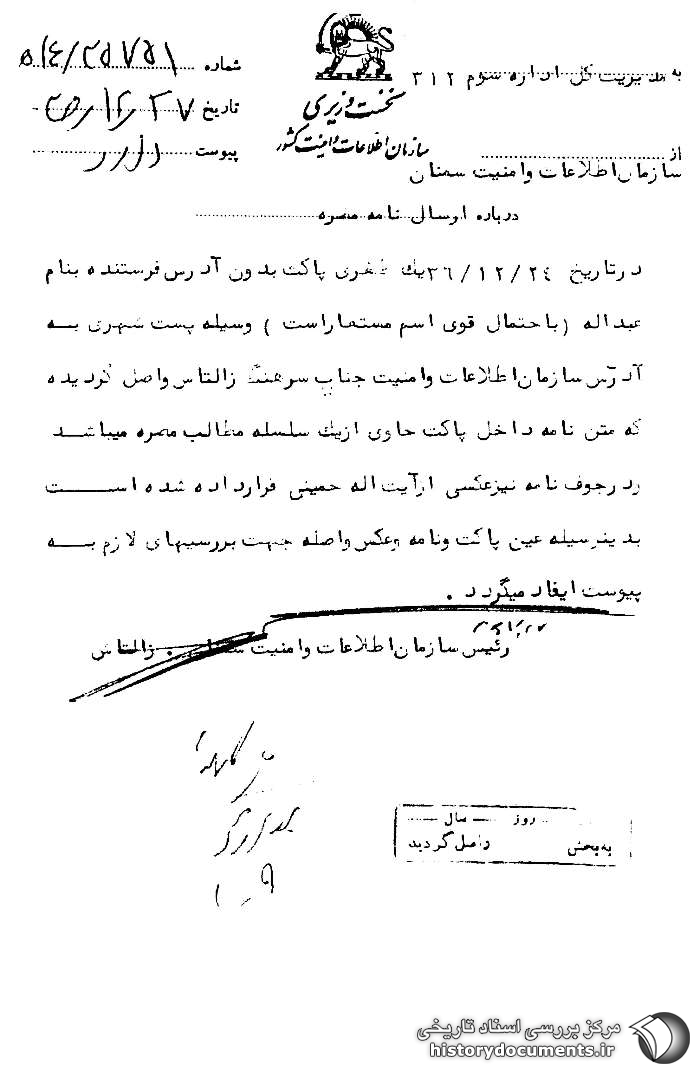 به مدیریت کل اداره سوم ۳۱۲
نخست وزیری
سازمان اطلاعات و امنیت کشور
شماره
تاریخ
پیوست دارد
از
سازمان اطلاعات و امنیت سمنان
درباره ارسال نامه مضره
در تاریخ ۳۶/۱۲/۲۴ یک طغری پاکت بدون آدرس فرستنده بنام
عبداله (با احتمال قوی اسم مستعار است) وسیله پست شهری به
آدرس سازمان اطلاعات و امنیت جناب سرهنگ زالتاش واصل گردیده
که متن نامه داخل پاکت حاوی از یک سلسله مطالب مضره میباشد
و در جوف نامه نیز عکسی از آیت اله خمینی قرار داده شده است
بدینوسیله عین پاکت و نامه و عکس واصله جهت بررسیهای لازم به
پیوست ایفاد میگردد .
رئیس سازمان اطلاعات و امنیت سمنان . زالتاش
روز سال
به بخش واصل گردید
مرکز بررسی اسناد تاریخی
historydocuments.ir